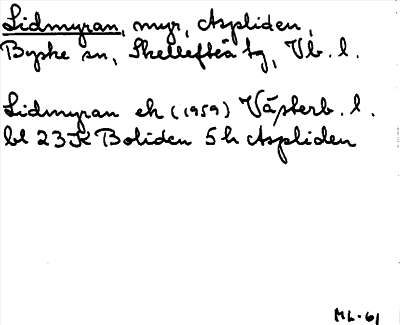 Lidmyran, myr, Aspliden,
Byske sn, Skellefteå tg, Vb. l.
Lidmyran ek (1959) Västerb. l.
bl 23K Boliden 5h Aspliden
ML-61